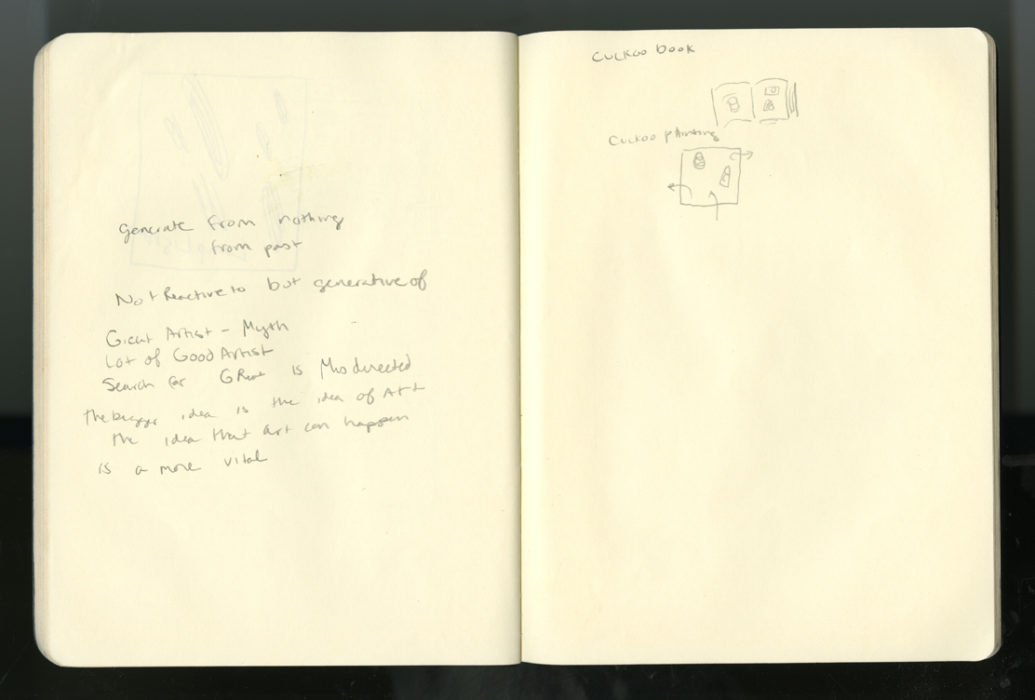 Generate from nothing
from past
Not Reactive to but generative of
Great Artist - Myth
Lot of Good Artist
Search for GReat is Misdirected
the bigger idea is the idea of Art
the idea that art can happen
is a more vital
Cuckoo book
Cuckoo painting